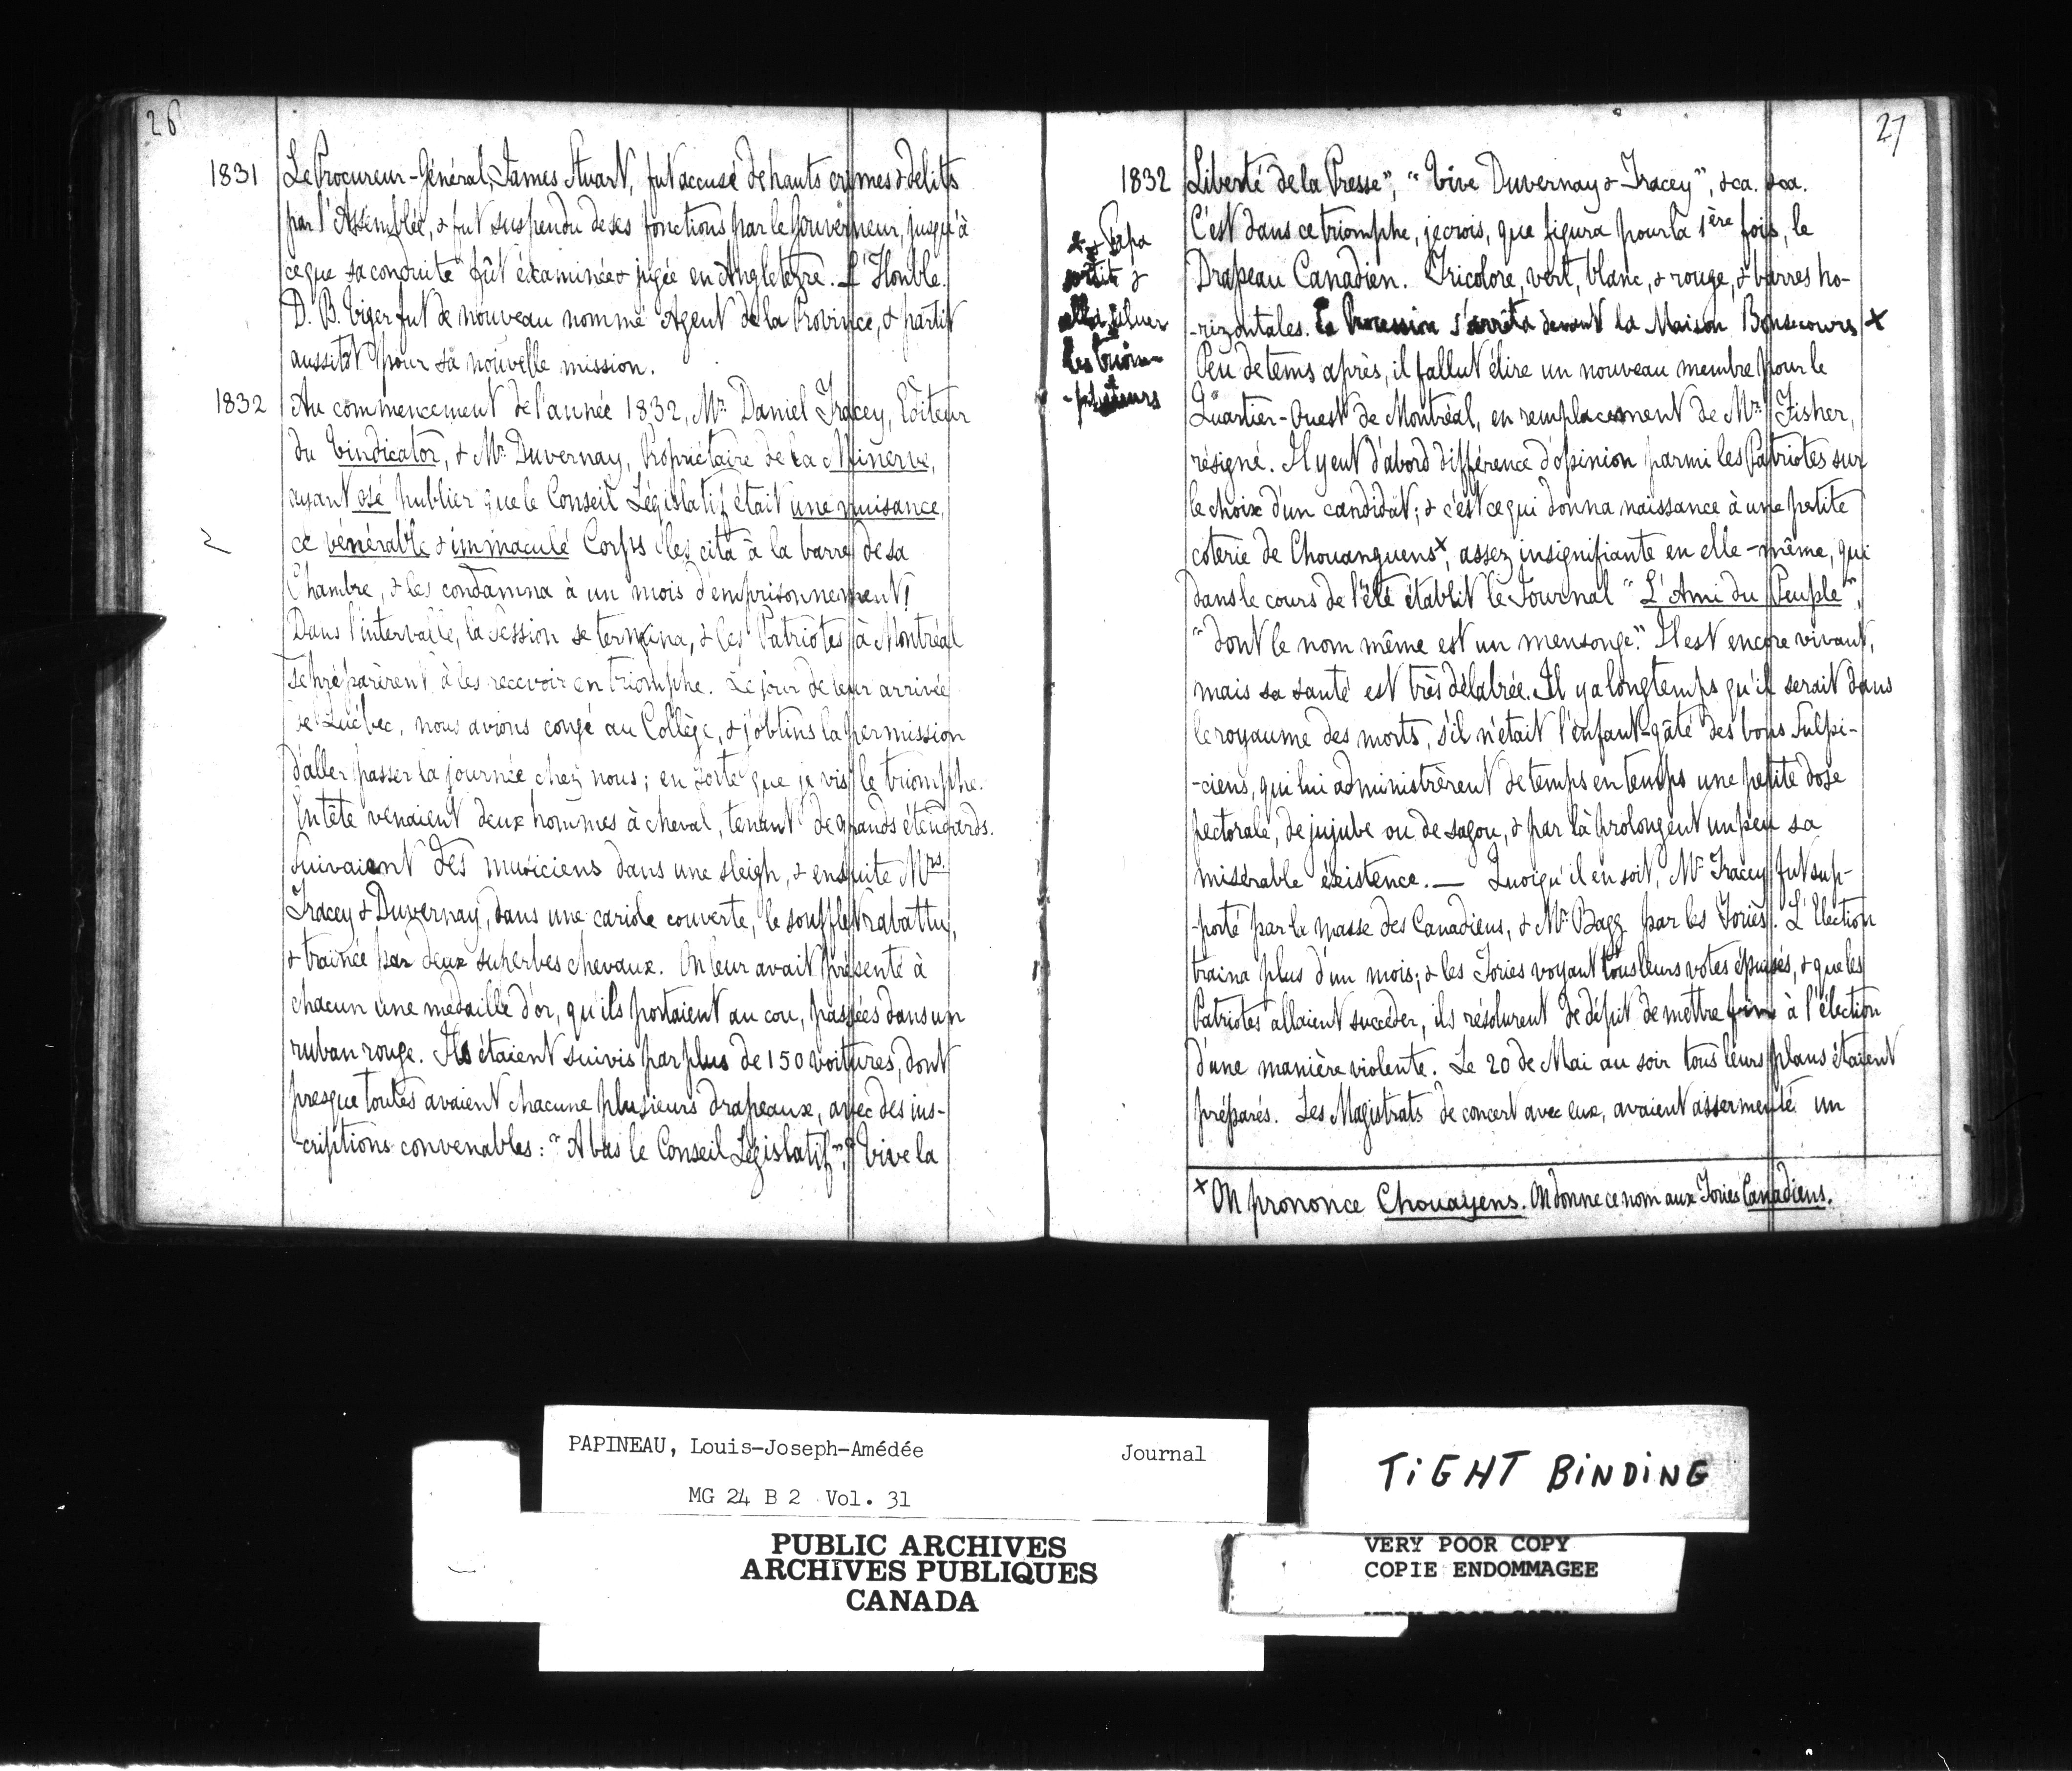 26
1831 Le Procureur-Général, James Stuart, fut accusé de hauts crimes & délits
par l'Assemblée, & fut suspendu de ses fonctions par le Gouverneur, jusqu'à
ce que sa conduite fût éxaminée & jugée en Angleterre. – L'Honble.
D. B. Viger fut de nouveau nommé Agent de la Province, & partit
aussitôt pour sa nouvelle mission.
1832 Au commencement de l'année 1832, Mr. Daniel Tracey, Editeur
du Vindicator, & Mr. Duvernay, Propriétaire de La Minerve,
ayant osé publier que le Conseil Législatif était une nuisance,
ce vénérable & immaculé Corps les cita à la barre de sa
Chambre, & les condamna à un mois d'emprisonnement!
Dans l'intervalle, la session se termina, & les Patriotes à Montréal
se préparèrent à les recevoir en triomphe. Le jour de leur arrivée
de Québec, nous avions congé au Collège, & j'obtins la permission
d'aller passer la journée chez nous; en sorte que je vis le triomphe.
En tête venaient deux hommes à cheval, tenant de grands étendards.
Suivaient des musiciens dans une sleigh, & ensuite Mrs.
Tracey & Duvernay, dans une cariole couverte, le soufflet rabattu,
& trainée par deux superbes chevaux. On leur avait présenté à
chacun une médaille d'or, qu'ils portaient au cou, passées dans un
ruban rouge. Ils étaient suivis par plus de 150 voitures, dont
presque toutes avaient chacune plusieurs drapeaux, avec des ins-
-criptions convenables: "A bas le Conseil Législatif", "Vive la
27
1832 Liberté de la Presse", "Vive Duvernay & Tracey", &ca. &ca.
C'est dans ce triomphe, je crois, que figura pour la 1ère fois, le
Drapeau Canadien. Tricolore, vert, blanc, & rouge, & barres ho-
-rizontales. La Procession s'arrêta devant la Maison Bonsecours x
x Papa
sortit &
alla saluer
les triom-
-phateurs
Peu de tems après, il fallut élire un nouveau membre pour le
Quartier-Ouest de Montréal, en remplacement de Mr. Fisher,
résigné. Il y eut d'abord différence d'opinion parmi les Patriotes sur
le choix d'un candidat; & c'est ce qui donna naissance à une petite
coterie de Chouanguens x, assez insignifiante en elle-même, qui
dans le cours de l'été établit le Journal "L'Ami du Peuple",
"dont le nom même est un mensonge". Il est encore vivant,
mais sa santé est très délabrée. Il y a longtemps qu'il serait dans
le royaume des morts, s'il n'était l'enfant-gâté des bons Sulpi-
-ciens, qui lui administrèrent de temps en temps une petite dose
pectorale, de jujube ou de sagou, & par là prolongent un peu sa
misérable éxistence. — Quoiqu'il en soit, Mr. Tracey fut sup-
-porté par la masse des Canadiens, & Mr. Bagg par les Tories. L'Election
traina plus d'un mois; & les Tories voyant tous leurs votes épuisés, & que les
Patriotes allaient succéder, ils résolurent de dépit de mettre fin à l'élection
d'une manière violente. Le 20 de Mai au soir tous leurs plans étaient
préparés. Les Magistrats de concert avec eux, avaient assermenté un
x On prononce Chouayens. On donne ce nom aux Tories Canadiens.
PAPINEAU, Louis-Joseph-Amédée Journal
MG 24 B 2 Vol. 31
PUBLIC ARCHIVES
ARCHIVES PUBLIQUES
CANADA
TIGHT BINDING
VERY POOR COPY
COPIE ENDOMMAGEE
VERY POOR COPY